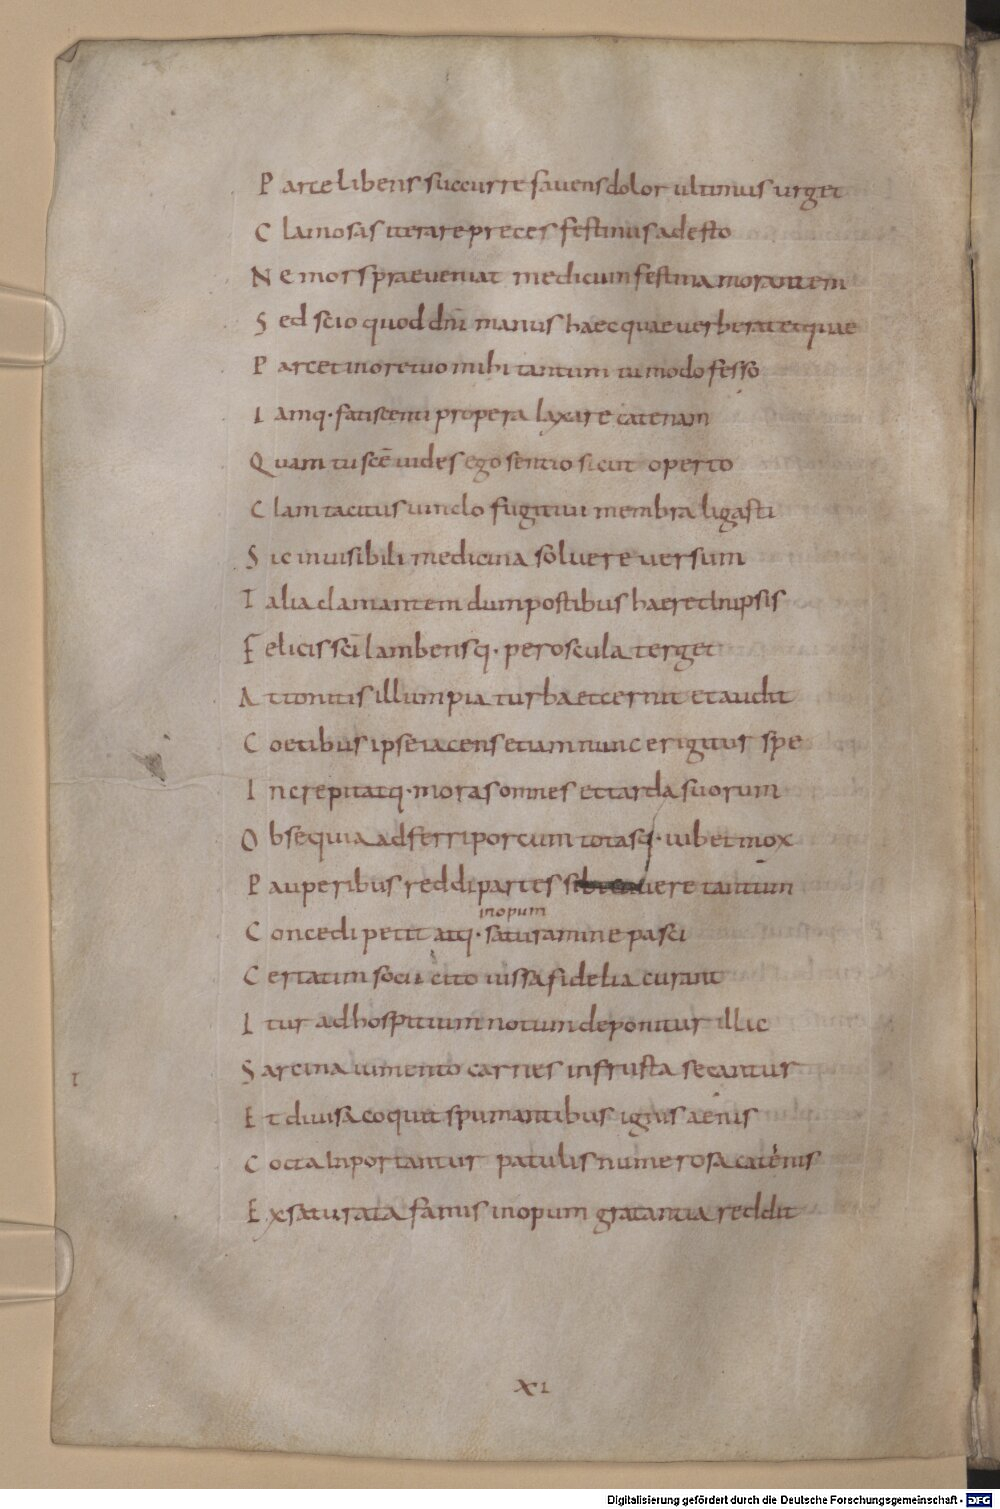 Parce libens succurre favens dolor ultimus urget
Clamosas iterare preces festinus adesto
Ne mors praeveniat medicum festina morantem
Sed scio quod dnī manus haec quae verberat et quae
Parcet in ore tuo mihi tantum tu modo fesso
Iamq· fatiscenti propera laxare catenam
Quam tu scē vides ego sentio sicut operto
Clam tacitus vinclo fugitivi membra ligasti
Sic invisibili medicina solvere versum
Talia clamantem dum postibus haeret in ipsis
Felicis scī lambensq· per oscula terget
Attonitis illum pia turba et cernit et audit
Coetibus ipse iacens etiam nunc erigitur spe
Increpitatq· moras omnes et tarda suorum
Obsequia adferri porcum totasq· iubet mox
Pauperibus reddi partes vere tantum
inopum
Concedi petit atq· saturamine pasci
Certatim socii cito iussa fidelia curant
Itur ad hospitium notum deponitur illic
Sarcina iumento carnes in frusta secantur
Et divisa coquit spumantibus ignis aenis
Cocta inportantur patulis numerosa catenis
Exsaturata famis inopum gratantia reddit
XI
Digitalisierung gefördert durch die Deutsche Forschungsgemeinschaft - DFG